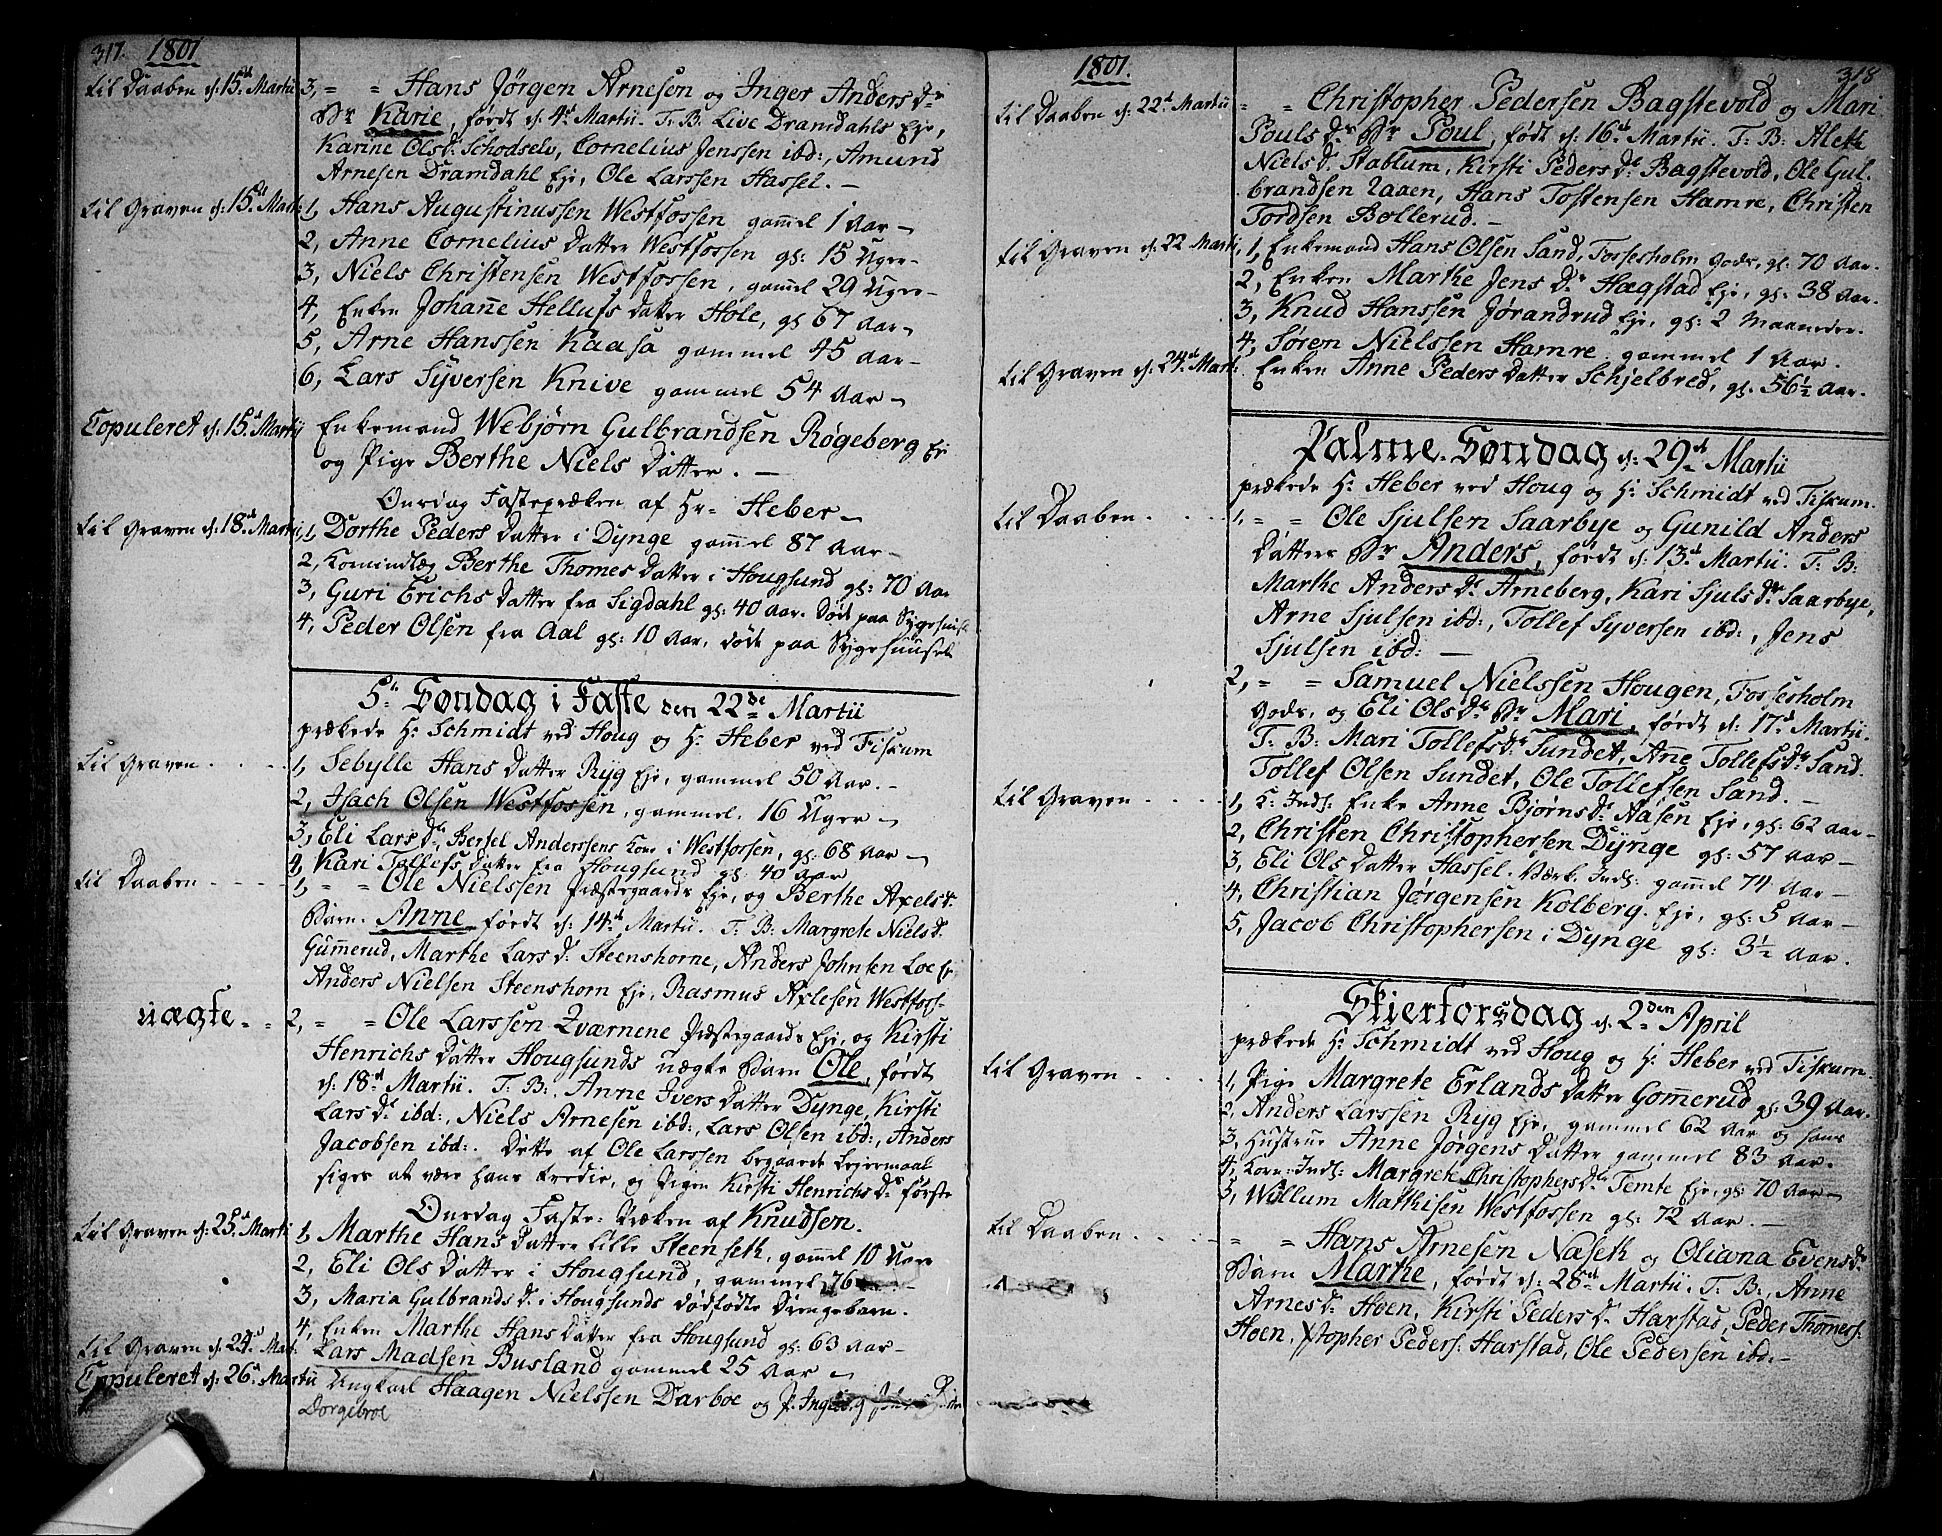 317. 1801
til Daaben d: 15de Martii 3, = = Hans Jørgen Arnesen og Inger Anders Dr
Br Karie, født d: 4de Martii. T: B: Live Dramdahls Eje,
Karine Ols D: Schodselv, Cornelius Jenssen ibd:, Amund
Arnesen Dramdahl Eje, Ole Larssen Hassel. –
til Graven d: 15de Marti 1, Hans Augustinussen Westfossen gam̄el 1 Aar –
2, Anne Cornelius Datter Westfossen gl: 15 Uger –
3, Niels Christensen Westfossen, gam̄el 29 Uger –
4, Enken Johan̄e Hellufs Datter Hole, gl 67 Aar –
5, Arne Hanssen Kaasa gammel 45 Aar –
6, Lars Syversen Knive gammel 54 Aar –
Copuleret d: 15de Martii Enkemand Webjørn Gulbrandsen Røgeberg Ej
og Pige Berthe Niels Datter. –
Onsdag Fasteprædken af Hr = Heber –
til Graven d: 18de Martii 1, Dorthe Peders Datter i Dynge gam̄el 87 Aar –
2, Berthe Thomes Datter i Hougsund gl: 70 Aar
3, Guri Erichs Datter fra Sigdahl gl: 40 Aar. Døde paa Sygehuuset
4, Peder Olsen fra Aal gl: 10 Aar, døde paa Sygehuuset
5te Søndag i Faste den 22de Martii
prækede Hr Schmidt ved Houg og Hr Heber ved Fiskum
til Graven . . . . . 1, Sebylle Hans Datter Ryg Eje, gammel 50 Aar. –
2, Isach Olsen Westfossen, gammel. 16 Uger –
3, Eli Lars Dr Bertel Anderssens Kone i Westfossen, gl: 68 Aar –
4, Kari Tollefs Datter fra Hougsund gl: 40 Aar
til Daaben . . . . 1, = = Ole Nielssen Præstegaards Eje, og Berthe Axels Dr
Barn. Anne født d: 14de Martii. T: B: Margrete Niels D:
Gum̄erud, Marthe Lars Dr Steenshorne, Anders Johnsen Loe Ej
Anders Nielsen Steenshorn Eje, Rasmus Axlesen Westfoss-
uægte . . 2, = = Ole Larssen Præstegaards Eje, og Kirsti
Henrichs Datter Hougsunds uægte Barn Ole, født
d: 18de Martii. T: B:, Anne Ivers Datter Dynge, Kirsti
Lars D: ibd:, Niels Arnesen ibd:, Lars Olsen ibd:, Anders
Jacobsen ibd:. Dette af Ole Larssen begaaede Lejermaal
siges at være hans tredie, og Pigen Kirsti Henrichs Ds første
Onsdag Faste: Præken af Knudsen.
til Graven d: 25de Marti 1, Marthe Hans Datter Lille Steenseth, gam̄el 10 Uger
2, Eli Ols Datter i Hougsund, gammel 76
3, Maria Gulbrands D: i Hougsunds dødfødte Drengebarn.
4, Enken Marthe Hans Datter fra Hougsund gl: 63 Aar –
til Graven d: 24de Mart. Lars Madsen Busland gammel 25 Aar –
Copuleret d: 26de Martii Ungkarl Haagen Nielssen Darboe og P. Ingeborg
Dorgebroe
1801. 318
til Daaben d: 22de Martii = = Christopher Pedersen Bagstevold og Mari
Pouls Dr Br Poul, født d: 16de Martii. T: B: Aleth
Niels D: Stablum, Kirsti Peders Dr Bagstevold, Ole Gul-
brandsen Aaen, Hans Tostensen Hamre, Christen
Tordsen Bollerud. –
til Graven d: 22 Martii, 1, Enkemand Hans Olsen Sand, Fossesholm Gods, gl: 70 Aar.
2, Enken Marthe Jens Dr Hægstad Eje, gl: 38 Aar.
3, Knud Hanssen Jørandrud Eje, gl: 2 Maaneder.
4, Søren Nielssen Hamre gammel 1 Aar.
til Graven d: 24de Marti. Enken Anne Peders Datter Schjelbred, gl: 56½ Aar.
Palme-Søndag d: 29de Martii
prækede Hr Heber ved Houg og Hr Schmidt ved Fiskum.
til Daaben . . . . 1, = = Ole Sjulsen Saarbye og Gunild Anders
Datters Br Anders, født d: 13de Martii. T: B:
Marthe Anders Dr Arneberg, Kari Sjuls Dr Saarbye,
Arne Sjulsen ibd:, Tollef Syversen ibd:, Jens
Sjulsen ibd: –
2, = = Samuel Nielssen Hougen, Fossesholm
Gods, og Eli Ols Dr Br Mari, født d: 17de Martii.
T: B: Mari Tollefs Dr Sundet, An̄e Tollefs Dr Sand.
Tollef Olsen Sundet, Ole Tollefsen Sand. –
til Graven . . . . 1, K: Inds: Enke Anne Bjørns D: Aasen Eje, gl: 62 Aar –
2, Christen Christophersen Dynge gl: 57 Aar –
3, Eli Ols Datter Hassel-Værk. Inds: gam̄el 74 Aar –
4, Christian Jørgensen Kolberg. Eje, gl: 5 Aar –
5, Jacob Christophersen i Dynge gl: 3½ Aar.
Skiertorsdag d: 2den April
prækede Hr Schmidt ved Houg og Hr Heber ved Fiskum.
til Graven . . . . 1, Pige Margrete Erlands Datter Gom̄erud gl: 39 Aar.
2, Anders Larssen Ryg Eje, gammel 62 Aar og hans
3, Hustrue Anne Jørgens Datter gammel 83 Aar.
4, Inds: Margrete Christophers Dr Temte Eje, gl: 70 Aar –
5, Willum Mathisen Westfossen gl: 72 Aar. –
til Daaben . . . . = = Hans Arnesen Næseth og Oliana Evens D:
Barn Marthe, født d: 28de Martii. T: B:, Anne
Arnes D: Hoen, Kirsti Peders D: Harstad, Peder Thom̄ers:
Hoen, Xstopher Peders: Harstad, Ole Pedersen ibd: –